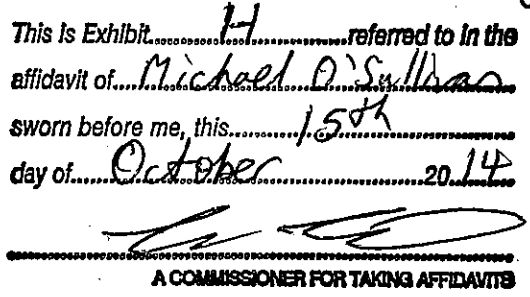 This is Exhibit..........H..........referred to in the
affidavit of...Michael O'Sullivan
sworn before me, this..........15th
day of.....October..........2014
A COMMISSIONER FOR TAKING AFFIDAVITS